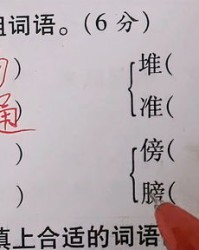 组词语。(6分)
) 堆(
通) 准(
) 傍(
) 膀(
填上合适的词语